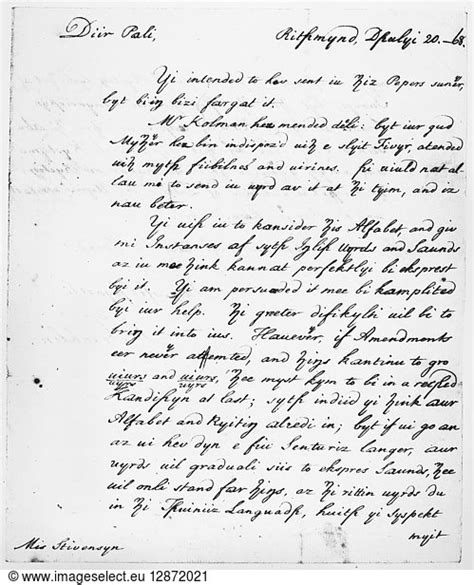 Diir Pali,
Ritshmynd, Dshulyi 20. -68.
Yi intended to hev sent iu ħiz Pepers sunɥr,
byt biiŋ bizi fargat it.
Mrs Kolman hez mended deli: byt iur gud
Myħɥr hez bin indispoz'd uiħ e slyit Fivyr, atended
uiħ mytsh fiibilnes and uirines. Hi uiuld nat al-
lau me to send iu uyrd av it at ħi tyim, and iz
nau beter.
Yi uish iu to kansider ħis Alfabet, and giv
mi Instanses af sytsh Iŋlish Uyrds and Saunds
az iu mee ħink kannat perfektlyi bi eksprest
byi it. Yi am persuaded it mee bi kamplited
byi iur help. ħi greter difikylti uil bi to
briŋ it into ius. Hauevɥr, if Amendments
eer nevɥr atemted, and ħiŋs kantinu to gro
uiurs and uiurs,
uyrs uyrs
ħee myst kym to bi in a retshed
Kandishyn at last; sytsh indiid yi ħink aur
Alfabet and Ryitiŋ alredi in; byt if ui go an
az ui hev dyn e fiu Senturiz langer, aur
uyrds uil graduali siis to ekspres Saunds, ħee
uil onli stand far ħiŋs, az ħi rittin uyrds du
in ħi Tshuiniiz Languadsh, huitsh yi syspekt
myit
Mis Stivensyn
© www.imageselect.eu 12872021